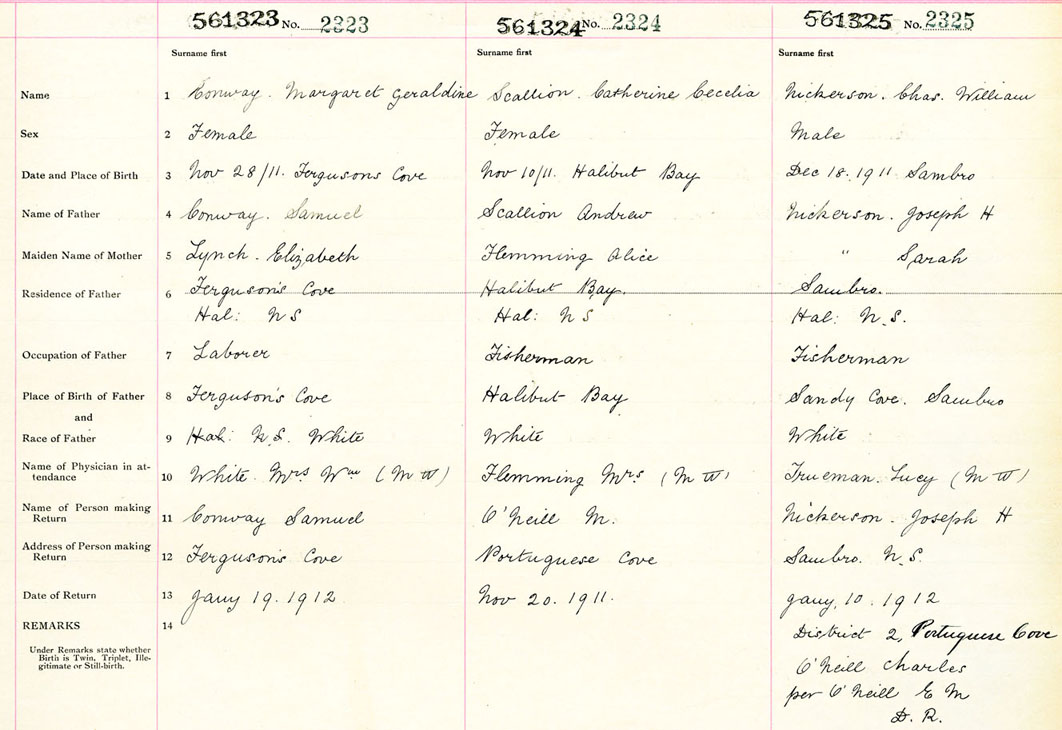 561323 No. 2323 561324 No. 2324 561325 No. 2325
Surname first Surname first Surname first
Name 1 Conway. Margaret Geraldine Scallion. Catherine Cecelia Nickerson. Chas. William
Sex 2 Female Female Male
Date and Place of Birth 3 Nov 28/11. Fergusons Cove Nov 10/11. Halibut Bay Dec 18. 1911 Sambro
Name of Father 4 Conway. Samuel Scallion Andrew Nickerson. Joseph H
Maiden Name of Mother 5 Lynch. Elizabeth Flemming Alice " Sarah
Residence of Father 6 Ferguson's Cove Halibut Bay. Sambro.
Hal: N S Hal: N S Hal: N.S.
Occupation of Father 7 Laborer Fisherman Fisherman
Place of Birth of Father 8 Ferguson's Cove Halibut Bay Sandy Cove. Sambro
and
Race of Father 9 Hal: N.S. White White White
Name of Physician in at-
tendance 10 White. Mrs Wm (M W) Flemming Mrs (M W) Trueman. Lucy (M W)
Name of Person making
Return 11 Conway Samuel O'Neill M. Nickerson. Joseph H
Address of Person making
Return 12 Ferguson's Cove Portuguese Cove Sambro. N.S.
Date of Return 13 Jany 19. 1912. Nov 20. 1911. Jany, 10. 1912
REMARKS 14 District 2, Portuguese Cove
Under Remarks state whether
Birth is Twin, Triplet, Ille-
gitimate or Still-birth.
O'Neill Charles
per O'Neill E M
D. R.